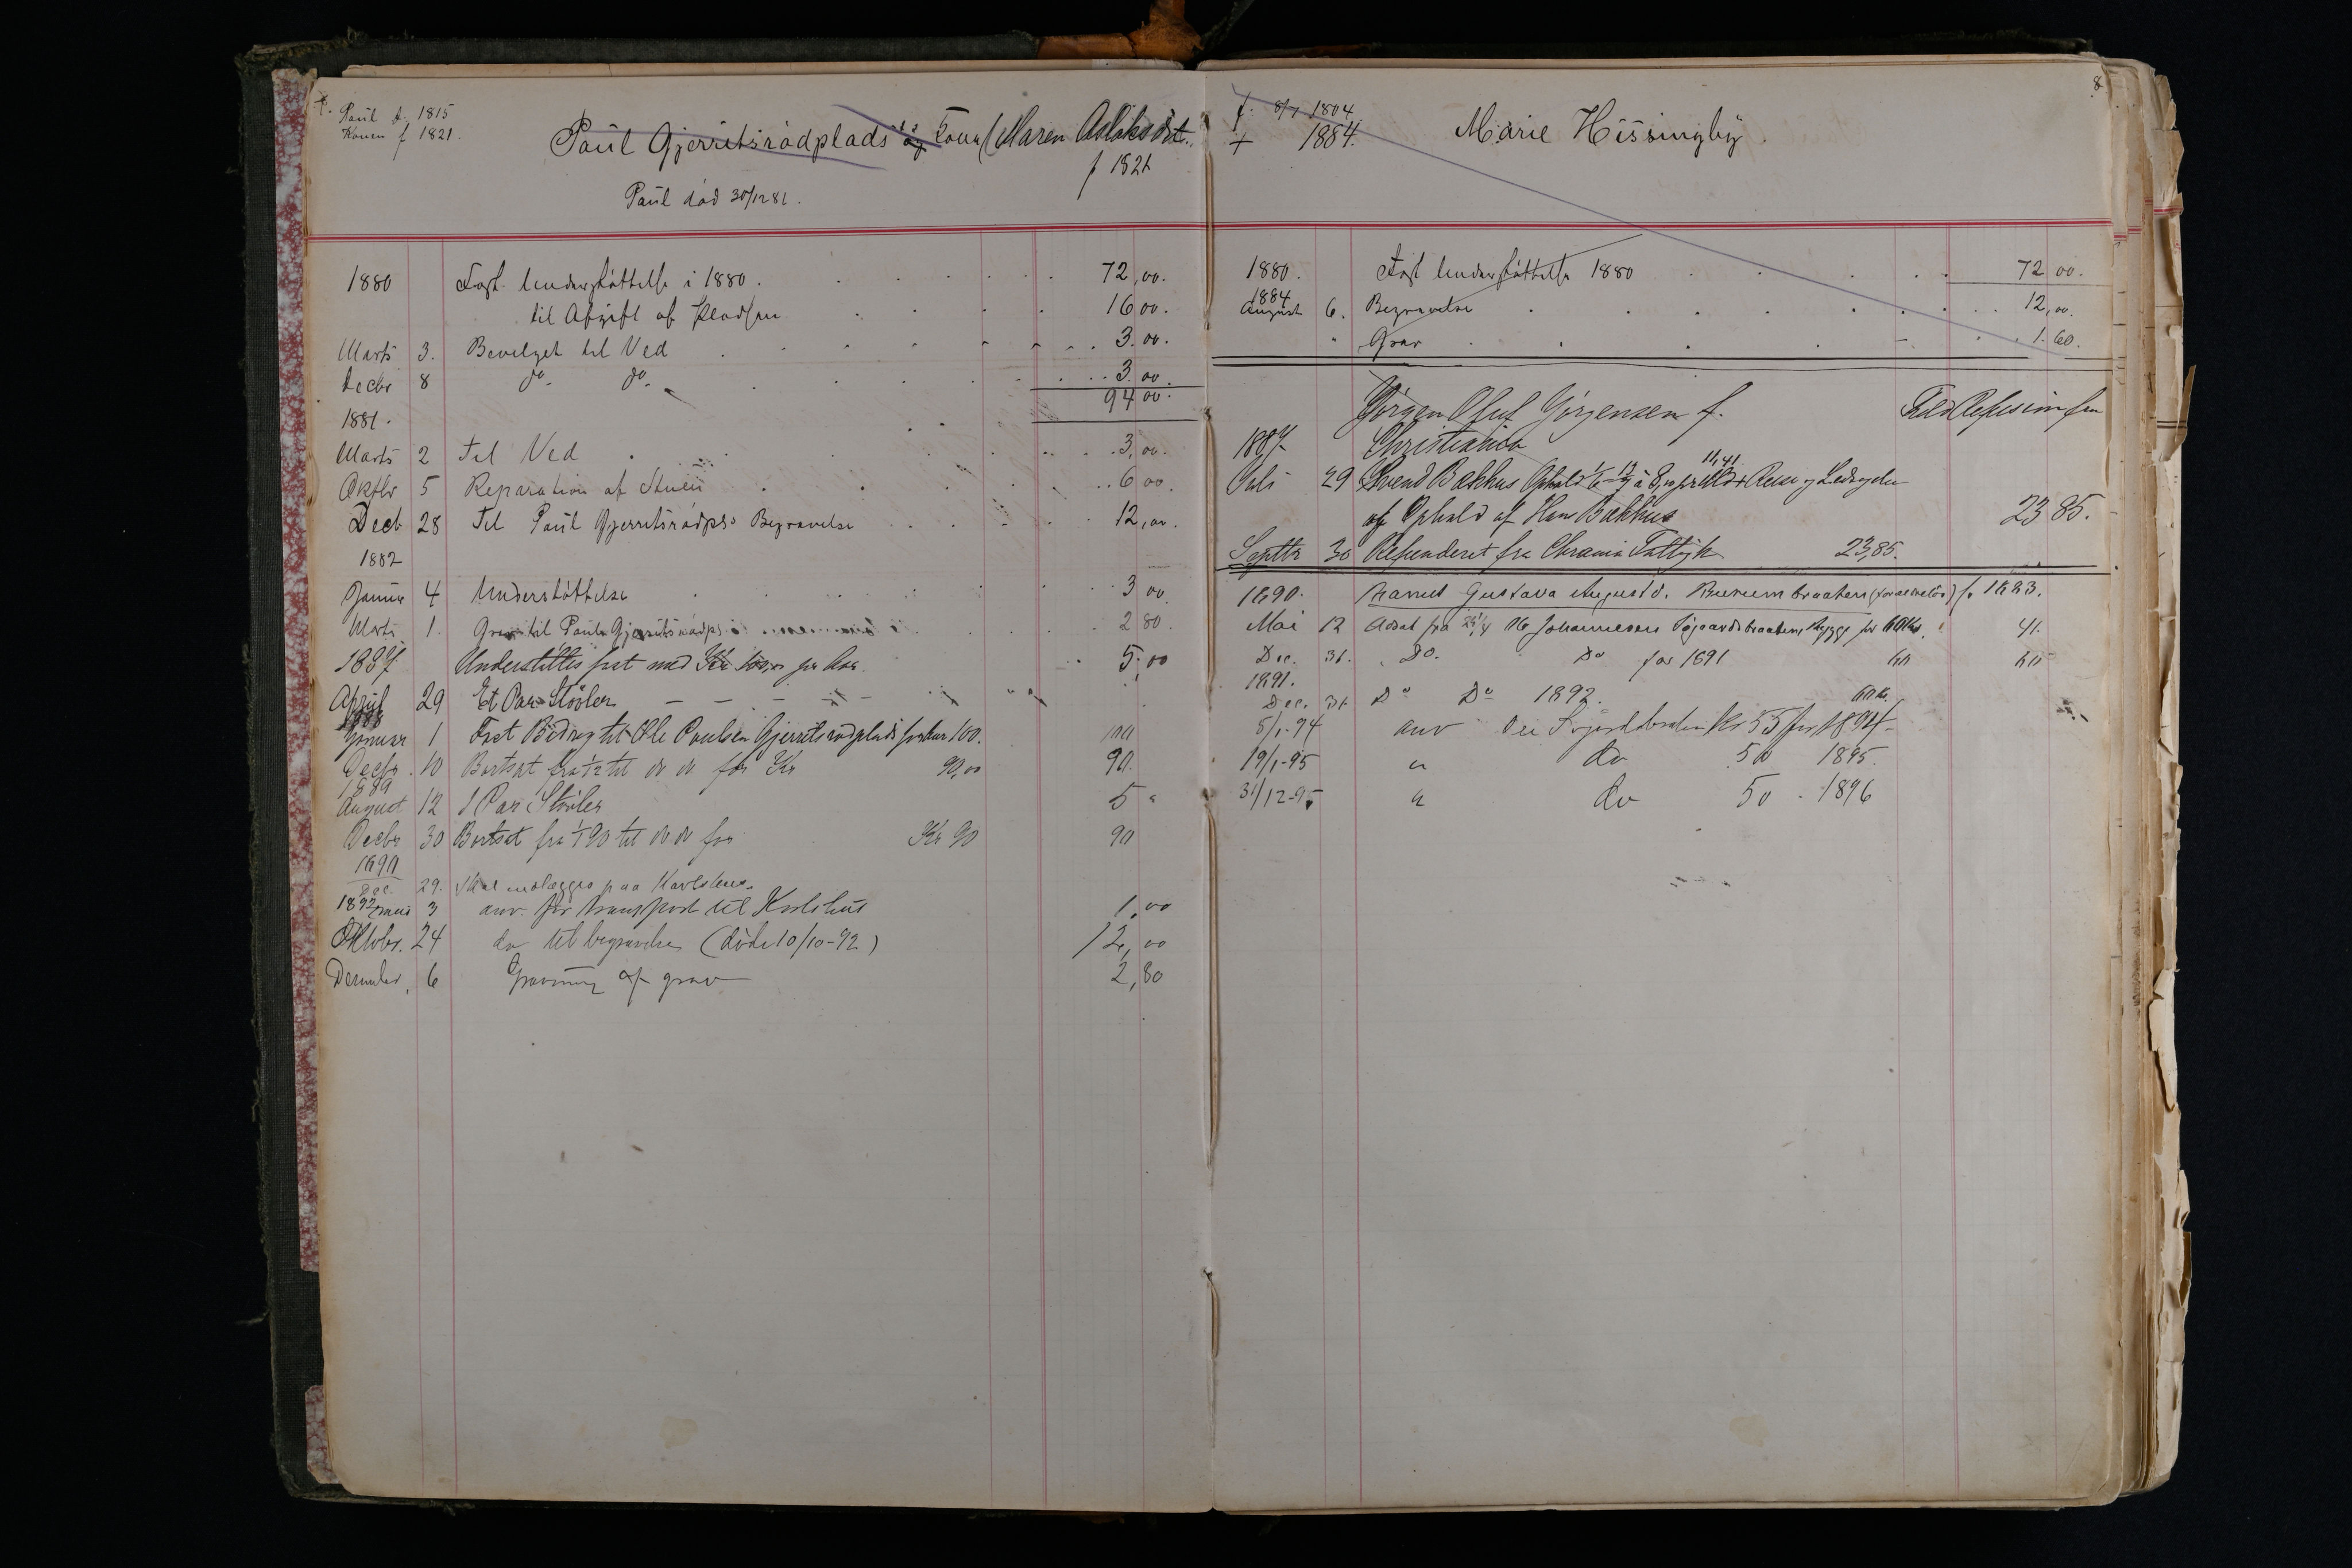 f. Paul f. 1815
Konen f 1821.
Paul Gjerritsrødplads og Kone (Maren Aslaksdt.
f 1821
Paul død 30/12 81.
1880 Fast Understøttelse i 1880. 72,00.
til Afgift af Pladsen 16 00.
Marts 3. Bevilget til Ved 3.00.
Decbr 8 do. do. 3.00.
94 00.
1881.
Marts 2 Til Ved 3,00.
Oktbr 5 Reparation af Stuen 6 00.
Decb 28 Til Paul Gjerritsrødpl.s Begravelse 12,00.
1882
Januar 4 Understøttelse 3 00
Marts 1. Grav til Paul Gjerritsrødpl. 2 80.
1887. Understøttes fast med Kr 100,00 pr Aar.
April 29 Et Par Støvler 5,00
1888
Januar 1 Fast Bidrag til Ole Paulsen Gjerritsrødplads pr Aar 100. 100
Decbr. 10 Bortsat fra 1/1 til do do for Kr 90,00 90.
1889
August 12 1 Par Støvler 5 "
Decbr 30 Bortsat fra 1/1 90 til do do for Kr 90 90
1890
Dec. 29. Skal indlægges paa Karlshus.
1892 3 anv. for transport til Karlshus 1,00
Oktobr. 24 do til begravelse (døde 10/10-92) 12,00
December, 6 Gravning af grav 2,80
8
f. 8/7 1804.
+ 1884.
Marie Hissingby.
1880. Fast Understøttelse 1880 72 00.
1884
August 6. Begravelse 12,00.
" Grav 1.60.
Jørgen Oluf Jørgensen f. Fuld Refusion fra
1887. Christiania
Juli 29 Svend Bakhus Ophold à 8 11,41 Reise og Ledsagelse
af Ophold af Hans Bakhus 23 85.
Septbr 30 Refunderet fra Chrania Fattigk 23,85.
1890. Gustava Augustd. Burumbraaten (forældreløs) f. 1883.
Mai 12 Adsat fra Johannesen for 60 Kr. 41.
Dec. 31. Do. Do for 1891 60 60
1891.
Dec. 31 Do Do 1892. 60 Kr.
5/1-94 anv Kr 55 for 1894
19/1-95 " do 50 1895.
31/12-95 " do 50 - 1896